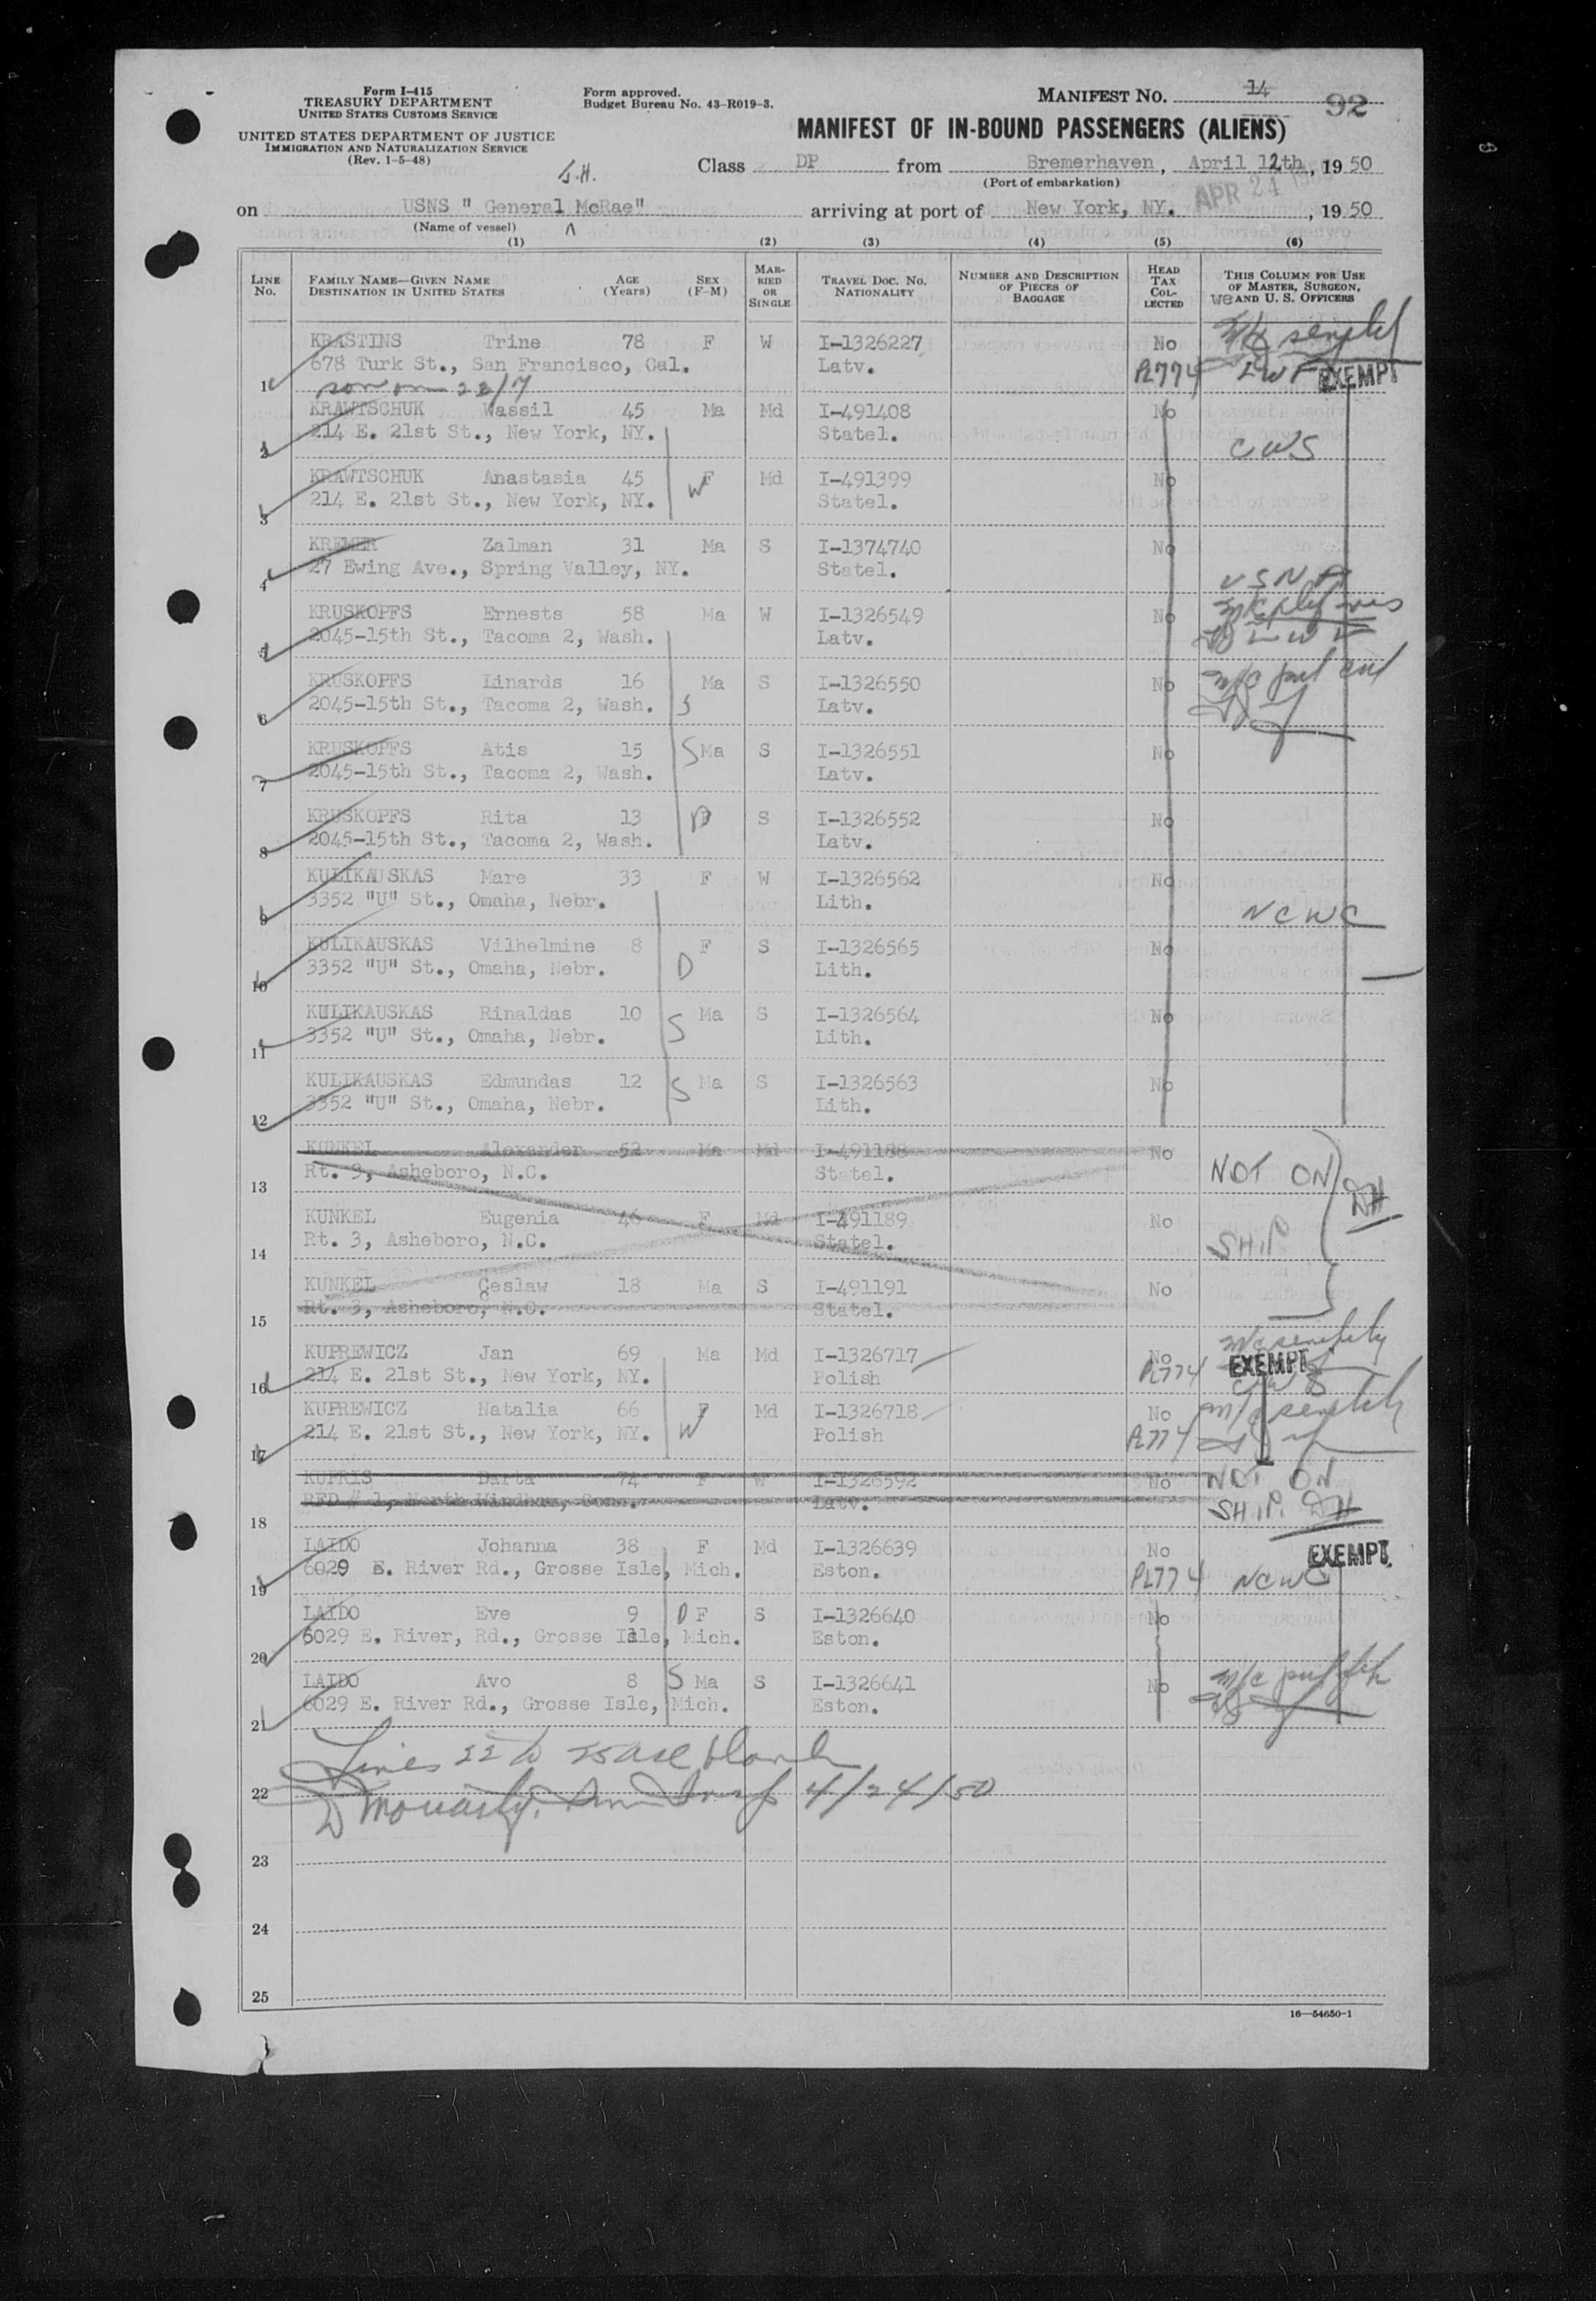 Form I-415
TREASURY DEPARTMENT
UNITED STATES CUSTOMS SERVICE
UNITED STATES DEPARTMENT OF JUSTICE
IMMIGRATION AND NATURALIZATION SERVICE
(Rev. 1-5-48)
Form approved.
Budget Bureau No. 43-R019-3.
MANIFEST NO. 14 92
MANIFEST OF IN-BOUND PASSENGERS (ALIENS)
Class DP from Bremerhaven, April 12th, 1950
(Port of embarkation)
APR 24
on USNS " General McRae" arriving at port of New York, NY. , 1950
(Name of vessel)
(1) (2) (3) (4) (5) (6)
LINE No. FAMILY NAME—GIVEN NAME DESTINATION IN UNITED STATES AGE (Years) SEX (F-M) MARRIED OR SINGLE TRAVEL DOC. NO. NATIONALITY NUMBER AND DESCRIPTION OF PIECES OF BAGGAGE HEAD TAX COLLECTED THIS COLUMN FOR USE OF MASTER, SURGEON, AND U. S. OFFICERS
KRASTINS Trine 78 F W I-1326227 No
678 Turk St., San Francisco, Cal. Latv. PL774 LWF EXEMPT
1
KRAWTSCHUK Wassil 45 Ma Md I-491408 No
214 E. 21st St., New York, NY. Statel. CWS
2
KRAWTSCHUK Anastasia 45 F W Md I-491399 No
214 E. 21st St., New York, NY. Statel.
3
KREMER Zalman 31 Ma S I-1374740 No
27 Ewing Ave., Spring Valley, NY. Statel.
4 USNA
KRUSKOPFS Ernests 58 Ma W I-1326549 No
2045-15th St., Tacoma 2, Wash. Latv. LWF
5
KRUSKOPFS Linards 16 Ma S I-1326550 No
2045-15th St., Tacoma 2, Wash. S Latv.
6
KRUSKOPFS Atis 15 S Ma S I-1326551 No
2045-15th St., Tacoma 2, Wash. Latv.
7
KRUSKOPFS Rita 13 D S I-1326552 No
2045-15th St., Tacoma 2, Wash. Latv.
8
KULIKAUSKAS Mare 33 F W I-1326562 No
3352 "U" St., Omaha, Nebr. Lith. NCWC
9
KULIKAUSKAS Vilhelmine 8 F S I-1326565 No
3352 "U" St., Omaha, Nebr. D Lith.
10
KULIKAUSKAS Rinaldas 10 Ma S I-1326564 No
3352 "U" St., Omaha, Nebr. S Lith.
11
KULIKAUSKAS Edmundas 12 S Ma S I-1326563 No
3352 "U" St., Omaha, Nebr. Lith.
12
KUNKEL Alexander 52 Ma Md I-491188 No
Rt. 3, Asheboro, N.C. Statel. NOT ON
13
KUNKEL Eugenia 46 F Md I-491189 No
Rt. 3, Asheboro, N.C. Statel. SHIP
14
KUNKEL Ceslaw 18 Ma S I-491191 No
Rt. 3, Asheboro, N.C. Statel.
15
KUPREWICZ Jan 69 Ma Md I-1326717 No
214 E. 21st St., New York, NY. Polish PL774 EXEMPT CWS
16
KUPREWICZ Natalia 66 F Md I-1326718 No
214 E. 21st St., New York, NY. W Polish PL774
17
KUPRIS Darta 74 F W I-1326592 No NOT ON
RFD # 1, North Windham, Conn. Latv. SHIP. DH
18
LAIDO Johanna 38 F Md I-1326639 No EXEMPT
6029 E. River Rd., Grosse Isle, Mich. Eston. PL774 NCWC
19
LAIDO Eve 9 D F S I-1326640 No
6029 E. River, Rd., Grosse Isle, Mich. Eston.
20
LAIDO Avo 8 S Ma S I-1326641 No
6029 E. River Rd., Grosse Isle, Mich. Eston.
21
Lines 22 to 25 are blank
22 4/24/50
23
24
25
16—54650-1